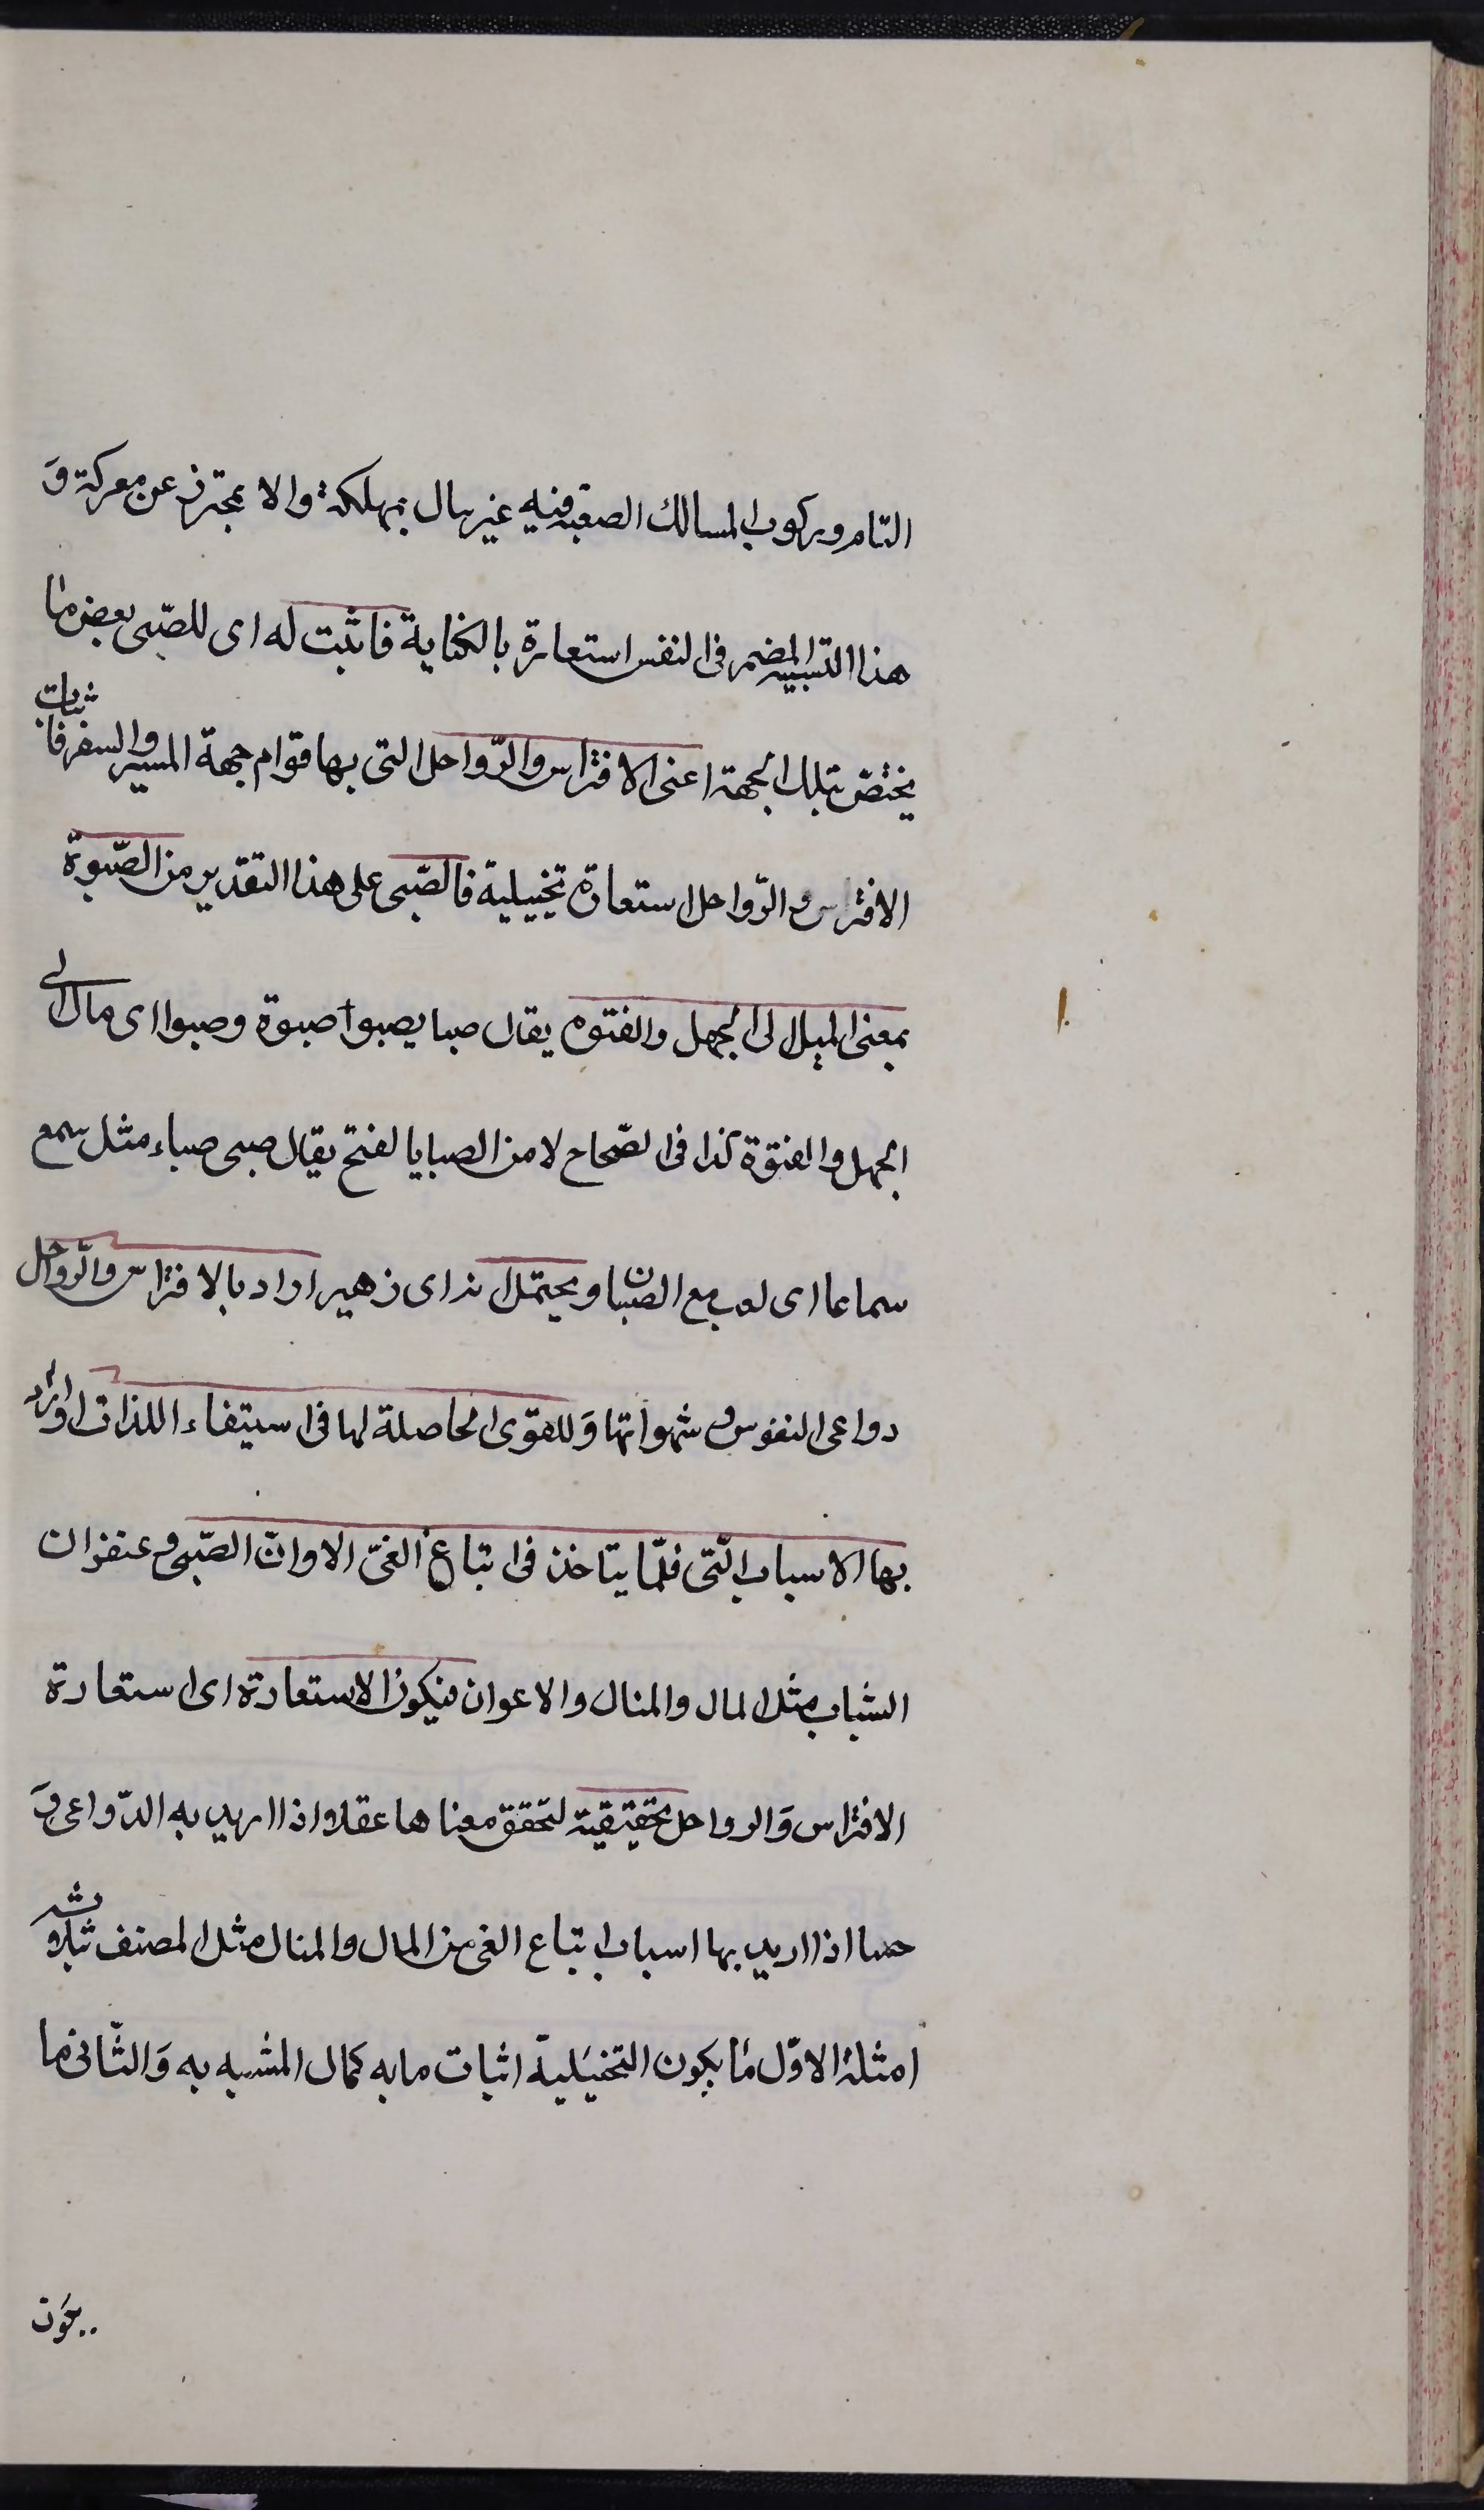 التام وركوب المسالك الصعبة فيه غير مبال بمهلكة والا محترز عن معركة و
هذا التشبيه المضمر فى النفس استعارة بالكناية فاثبت له اى للصّبى بعض ما
يختصّ بتلك الجهة اعنى الافتراس والرّواحل التى بها قوام جهة المسير والسفر فاثبات
الافتراس والرّواحل استعارة تخييلية فالصّبى على هذا التقدير من الصّبوة
بمعنى الميل الى الجهل والفتوه يقال صبا يصبوا صبوة وصبوا اى مال الى
الجهل والفتوة كذا فى الصّحاح لا من الصبا بالفتح يقال صبى صباء مثل سمع
سماعا اى لعب مع الصبيان ويحتمل انه اى زهير اراد بالافتراس والرّواحل
دواعى النفوس وشهواتها وَللقوى الحاصلة لها فى استيفاء اللذات او اراد
بها الاسباب الّتى قلّما يتاخذ فى اتباع الغىّ الا اوانّ الصّبى وعنفوان
الشباب مثل المال والمنال والاعوان فيكون الاستعارة اى استعارة
الافتراس وَالرواحل تحقيقية لتحقق معناها عقلا اذا اريد به الدّواعى وَ
حسا اذا اريد بها اسباب اتباع الغى من المال والمنال مثل المصنف بثلاثه
امثلة الاوّل ما يكون التخييَلية اثبات ما به كمال المشبه به وَالثّانى ما
يكون